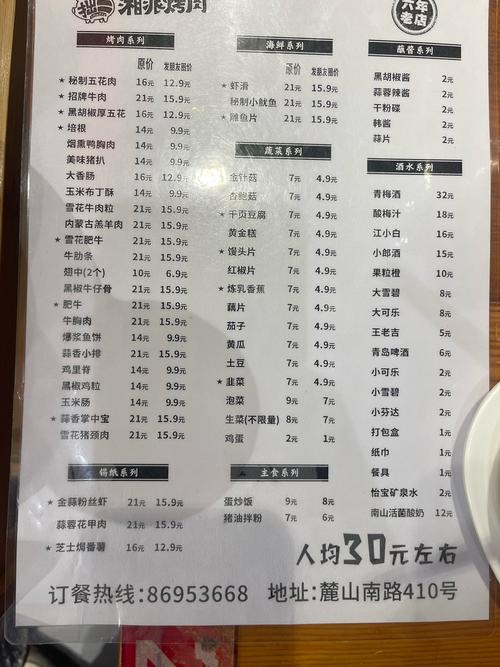 湘派烤肉
六年
老店
烤肉系列
原价 发朋友圈价
★ 秘制五花肉 16元 12.9元
★ 招牌牛肉 21元 15.9元
★ 黑胡椒厚五花 16元 12.9元
★ 培根 14元 9.9元
烟熏鸭胸肉 14元 9.9元
美味猪扒 14元 9.9元
大香肠 16元 12.9元
玉米布丁酥 14元 9.9元
雪花牛肉粒 21元 15.9元
内蒙古羔羊肉 21元 15.9元
★ 雪花肥牛 21元 15.9元
牛肋条 21元 15.9元
翅中(2个) 10元 6.9元
黑椒牛仔骨 21元 15.9元
★ 肥牛 21元 15.9元
牛胸肉 21元 15.9元
爆浆鱼饼 14元 9.9元
蒜香小排 21元 15.9元
鸡里脊 14元 9.9元
黑椒鸡粒 14元 9.9元
玉米肠 14元 9.9元
★ 蒜香掌中宝 21元 15.9元
雪花猪颈肉 21元 15.9元
锡纸系列
★ 金蒜粉丝虾 21元 15.9元
蒜蓉花甲肉 21元 15.9元
★ 芝士焗番薯 16元 12.9元
海鲜系列
原价 发朋友圈价
★ 虾滑 21元 15.9元
秘制小鱿鱼 21元 15.9元
★ 雕鱼片 21元 15.9元
蔬菜系列
金针菇 7元 4.9元
杏鲍菇 7元 4.9元
★ 千页豆腐 7元 4.9元
黄金糕 7元 4.9元
★ 馒头片 7元 4.9元
红椒片 7元 4.9元
★ 炼乳香蕉 7元 4.9元
藕片 7元 4.9元
茄子 7元 4.9元
黄瓜 7元 4.9元
土豆 7元 4.9元
★ 韭菜 7元 4.9元
泡菜 9元 7元
生菜(不限量) 8元 7元
鸡蛋 2元 1元
主食系列
蛋炒饭 9元 8元
猪油拌粉 7元 6元
蘸酱系列
黑胡椒酱 2元
蒜蓉辣酱 2元
干粉碟 2元
韩酱 2元
蒜片 2元
酒水系列
青梅酒 32元
酸梅汁 18元
江小白 16元
小郎酒 15元
果粒橙 10元
大雪碧 8元
大可乐 8元
王老吉 5元
青岛啤酒 6元
小可乐 2元
小雪碧 2元
小芬达 2元
打包盒 1元
纸巾 1元
餐具 1元
怡宝矿泉水 2元
南山活菌酸奶 12元
人均30元左右
订餐热线:86953668 地址:麓山南路410号